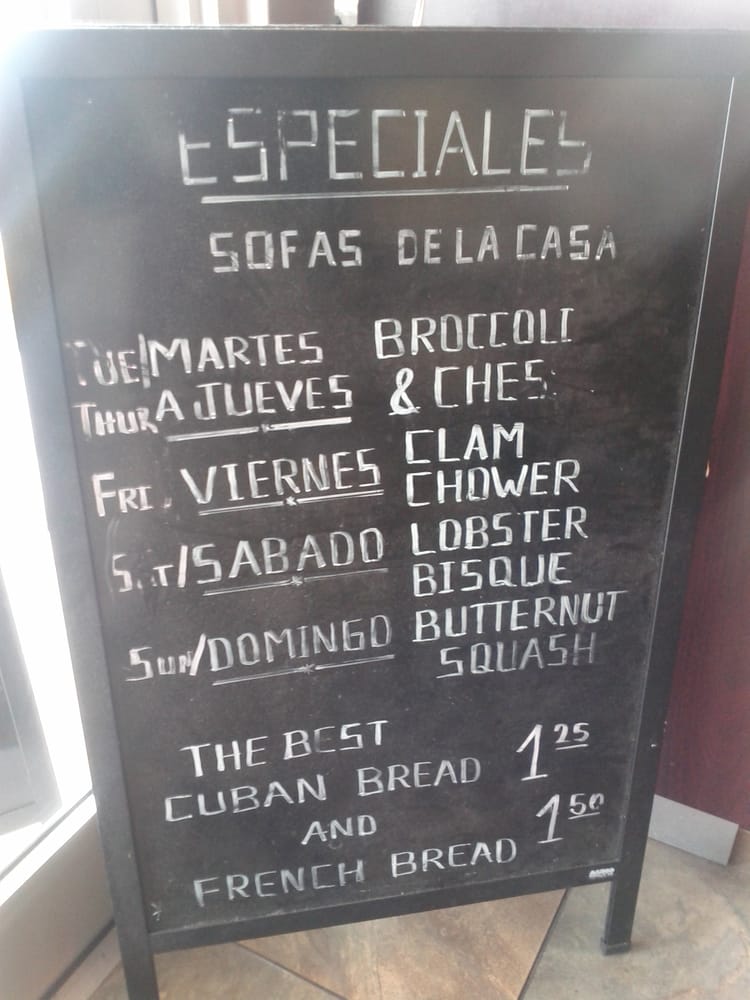 ESPECIALES
SOFAS DE LA CASA
TUE/MARTES BROCCOLI
THUR A JUEVES & CHES
FRI. VIERNES CLAM
CHOWER
SAT/SABADO LOBSTER
BISQUE
SUN/DOMINGO BUTTERNUT
SQUASH
THE BEST
CUBAN BREAD 1 25
AND
FRENCH BREAD 1 50